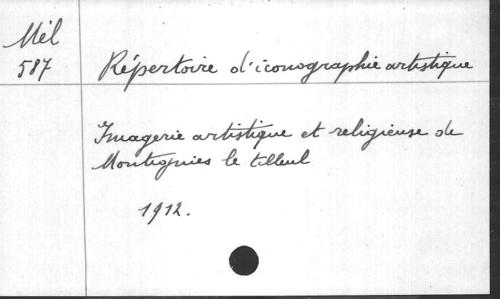 Mél
587
Répertoire d'iconographie artistique
Imagerie artistique et religieuse de
Montignies le tilleul
1912.